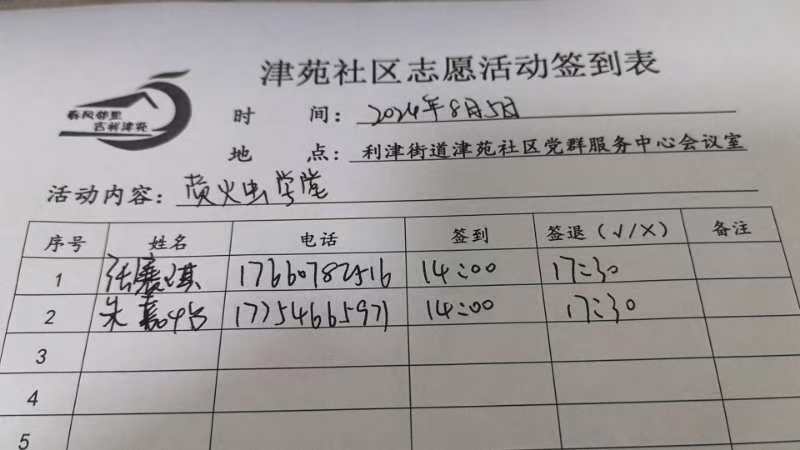 津苑社区志愿活动签到表
时 间：2024年8月5日
地 点：利津街道津苑社区党群服务中心会议室
活动内容：萤火虫学堂
序号 姓名 电话 签到 签退（√/×） 备注
1 17660782516 14:00 17:30
2 朱嘉 17754665971 14:00 17:30
3
4
5